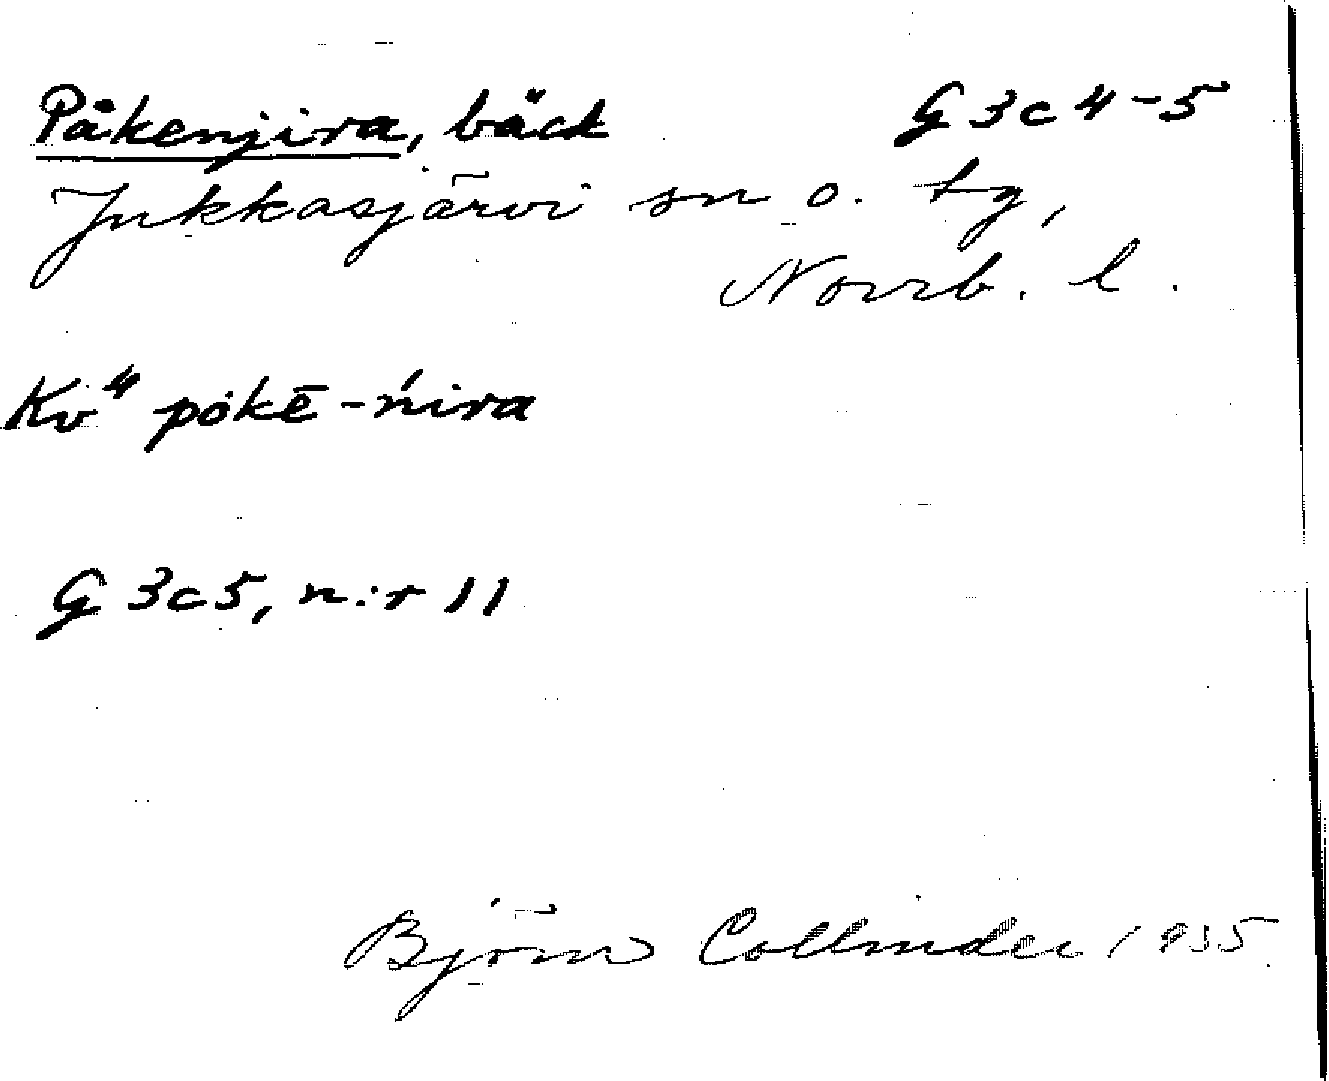 Påkenjira, bäck G 3c 4-5
Jukkasjärvi sn o. tg,
Norrb. l.
Kv⁴ pokē-ńira
G 3c5, n:r 11
Björn Collinder 1935